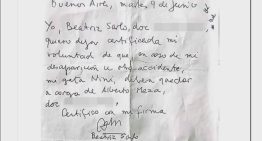 Buenos Aires, martes 9 de junio
Yo, Beatriz Sarlo, doc
quiero dejar certificada mi
voluntad de que en caso de mi
desaparición u otro accidente,
mi gata Nini, deben quedar
a cargo de Alberto Meza,
doc
Certifico con mi firma
Beatriz Sarlo